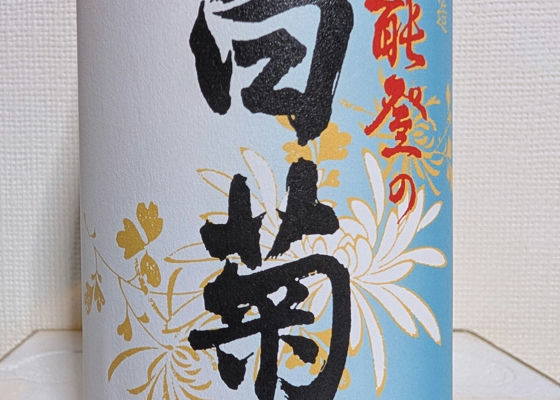 能登の
白菊